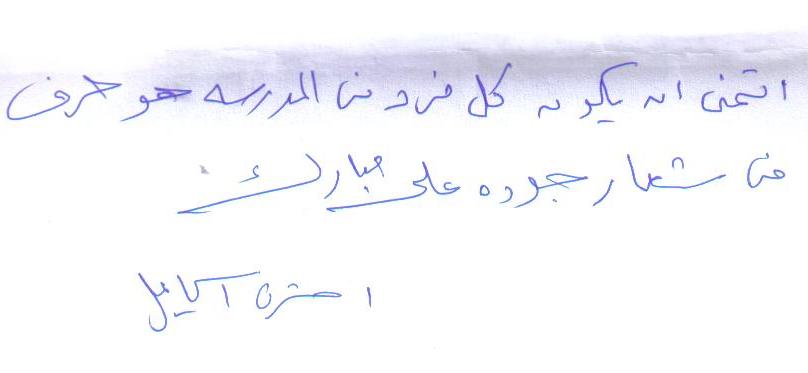 اتمنى ان يكون كل فرد من المدرسه هو حرف
من شعار جوده على مبارك